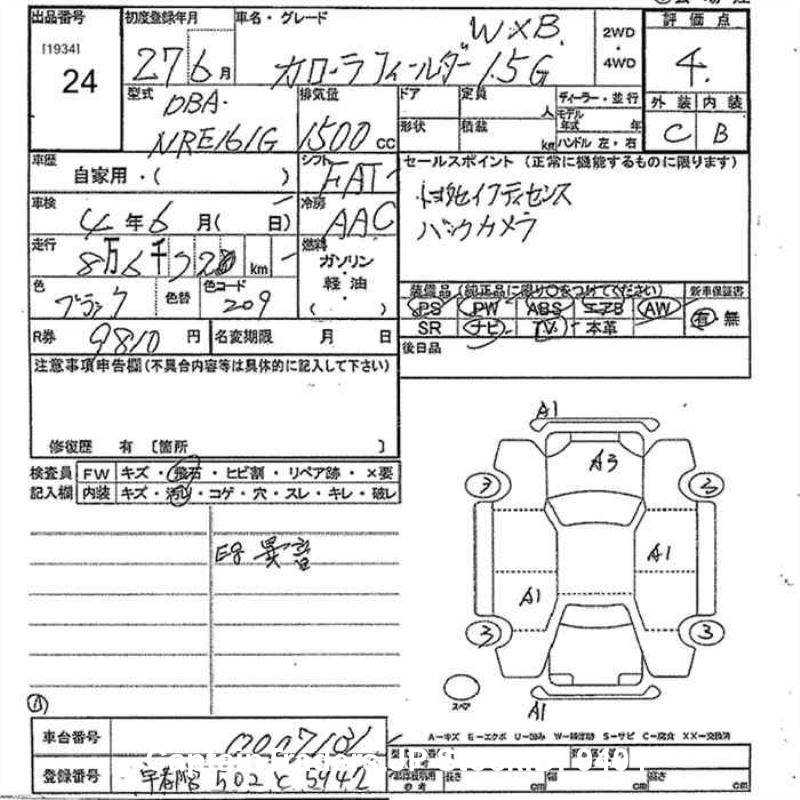 出品番号
[1934]
24
初度登録年月
27 6月
車名・グレード
W×B
カローラフィールダー 1.5G
2WD
・
4WD
評価点
4
外装 内装
C B
型式
DBA-
NRE161G
排気量
1500 cc
ドア
定員
人
ディーラー・並行
形状
積載
km
モデル年式 年
ハンドル 左・右
車歴
自家用・( )
シフト
FAT
セールスポイント (正常に機能するものに限ります)
トヨタセイフティセンス
バックカメラ
車検
4年6月( 日)
冷房
AAC
走行
8万6千 km
燃料
ガソリン
・
軽油
( )
色
ブラック
色替
色コード
209
装備品 (純正品に限り○をつけてください)
新車保証書
PS PW ABS エアB AW
SR ナビ TV 本革
有・無
R券
9810 円
名変期限 月 日
後日品
注意事項申告欄(不具合内容等は具体的に記入して下さい)
修復歴 有 [箇所 ]
検査員
記入欄
FW キズ・飛石・ヒビ割・リペア跡・×要
内装 キズ・汚れ・コゲ・穴・スレ・キレ・破レ
Eg 異音
A1
A3
3 3
A1
A1
3 3
スペア
A1
A
A-キズ E-エクボ U-凹み W-補修跡 S-サビ C-腐食 XX-交換済
車台番号
登録番号
502 と 5942
長さ cm 幅 cm 高さ cm